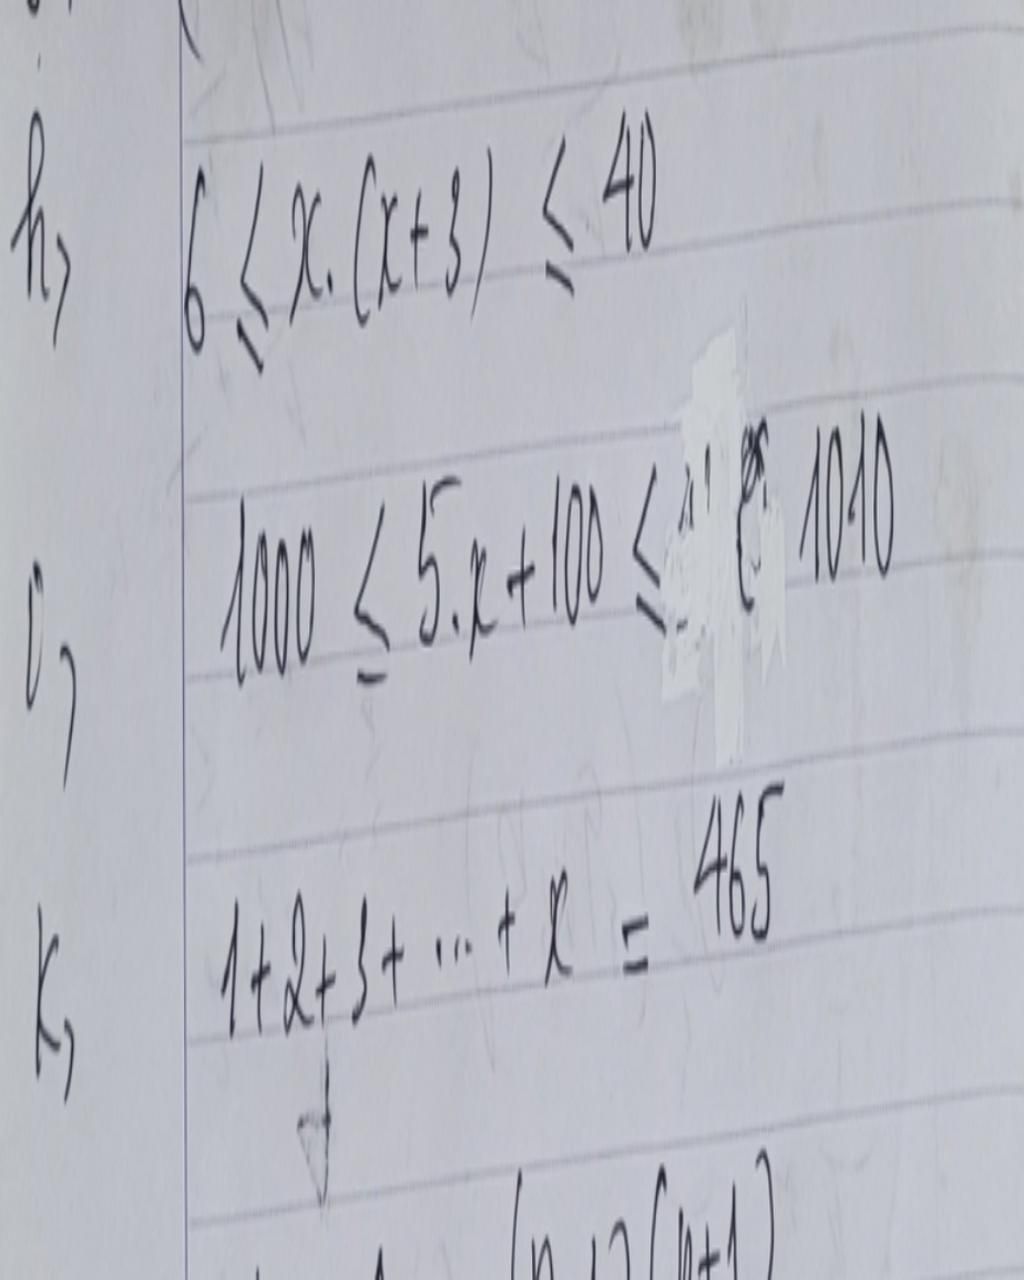 h, 6 ≤ x.(x+3) ≤ 40
i, 1000 ≤ 5.x+100 ≤ 1010
k, 1+2+3+ ... + x = 465
(n+1)